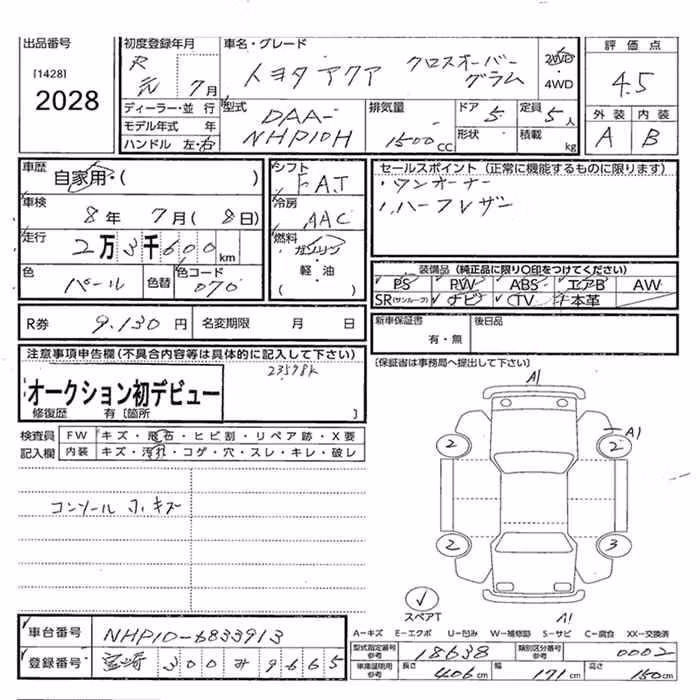 出品番号
[1428]
2028
初度登録年月
R
元 7月
車名・グレード
トヨタ アクア クロスオーバー
グラム
2WD
4WD
評価点
4.5
外装 内装
A B
ディーラー・並行
モデル年式 年
ハンドル 左・右
型式
DAA-
NHP10H
排気量
1500cc
ドア 5
形状
定員 5人
積載 kg
車歴
自家用・( )
車検
8年 7月(8日)
走行
2万3千600km
色
パール
色替
色コード
070
シフト
FAT
冷房
AAC
燃料
ガソリン
軽・油
( )
セールスポイント(正常に機能するものに限ります)
・ワンオーナー
・ハーフレザー
装備品(純正品に限り〇印をつけてください)
PS PW ABS エアB AW
SR(サンルーフ) ナビ TV 本革
R券 9,130円
名変期限 月 日
新車保証書
有・無
後日品
[保証書は事務局へ提出して下さい]
注意事項申告欄(不具合内容等は具体的に記入して下さい)
23598K
オークション初デビュー
修復歴 有 [箇所 ]
検査員
記入欄
FW キズ・飛石・ヒビ割・リペア跡・X要
内装 キズ・汚れ・コゲ・穴・スレ・キレ・破レ
コンソール 小キズ
A1
2
2
A1
2
3
スペアT
A1
車台番号 NHP10-6833913
登録番号 宮崎 300 み 9665
A-キズ E-エクボ U-凹み W-補修跡 S-サビ C-腐食 XX-交換済
型式指定番号
参考
18638
類別区分番号
参考
0002
車庫証明用
参考
長さ 406cm
幅 171cm
高さ 150cm